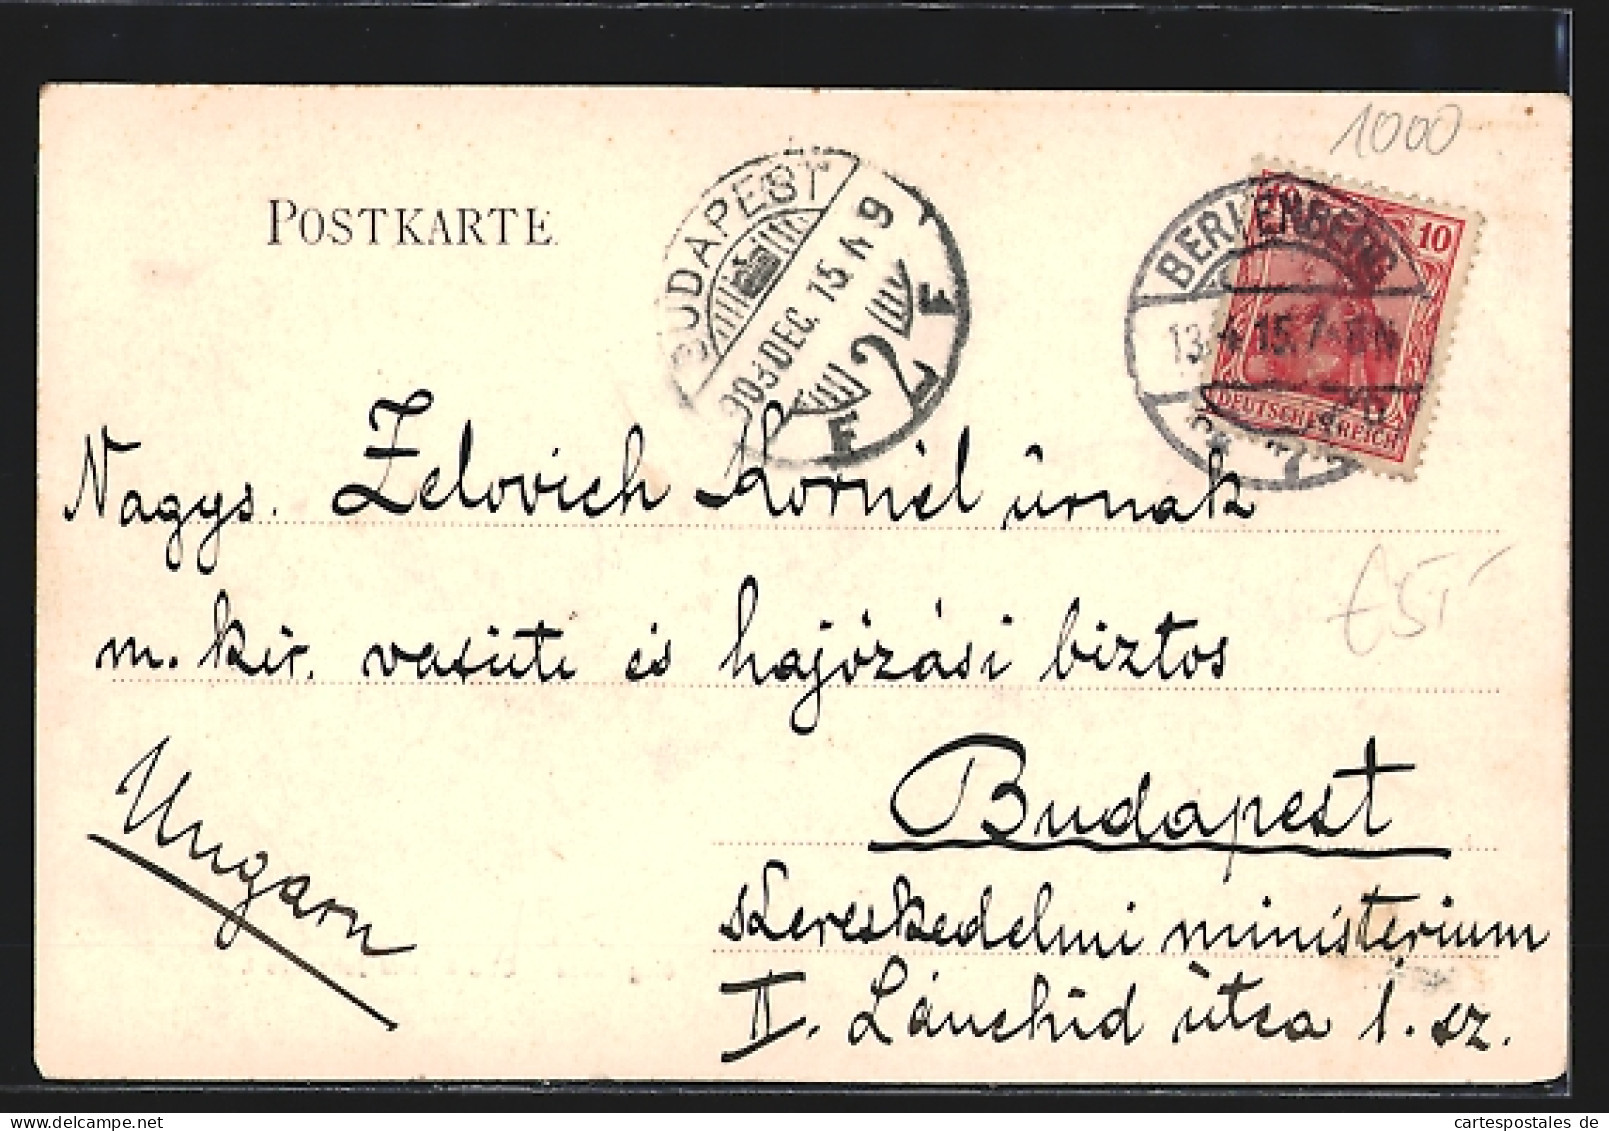 1000
POSTKARTE
BUDAPEST
903 DEC. 15. 9
2
F F
10
DEUTSCHES REICH
13. 15. 7-8 N
Nagys. Zelovich Kornél úrnak
m. kir. vasúti és hajózási biztos
Ungarn
Budapest
Kereskedelmi ministerium
II. Lánchíd útca 1. sz.
cartespostales de